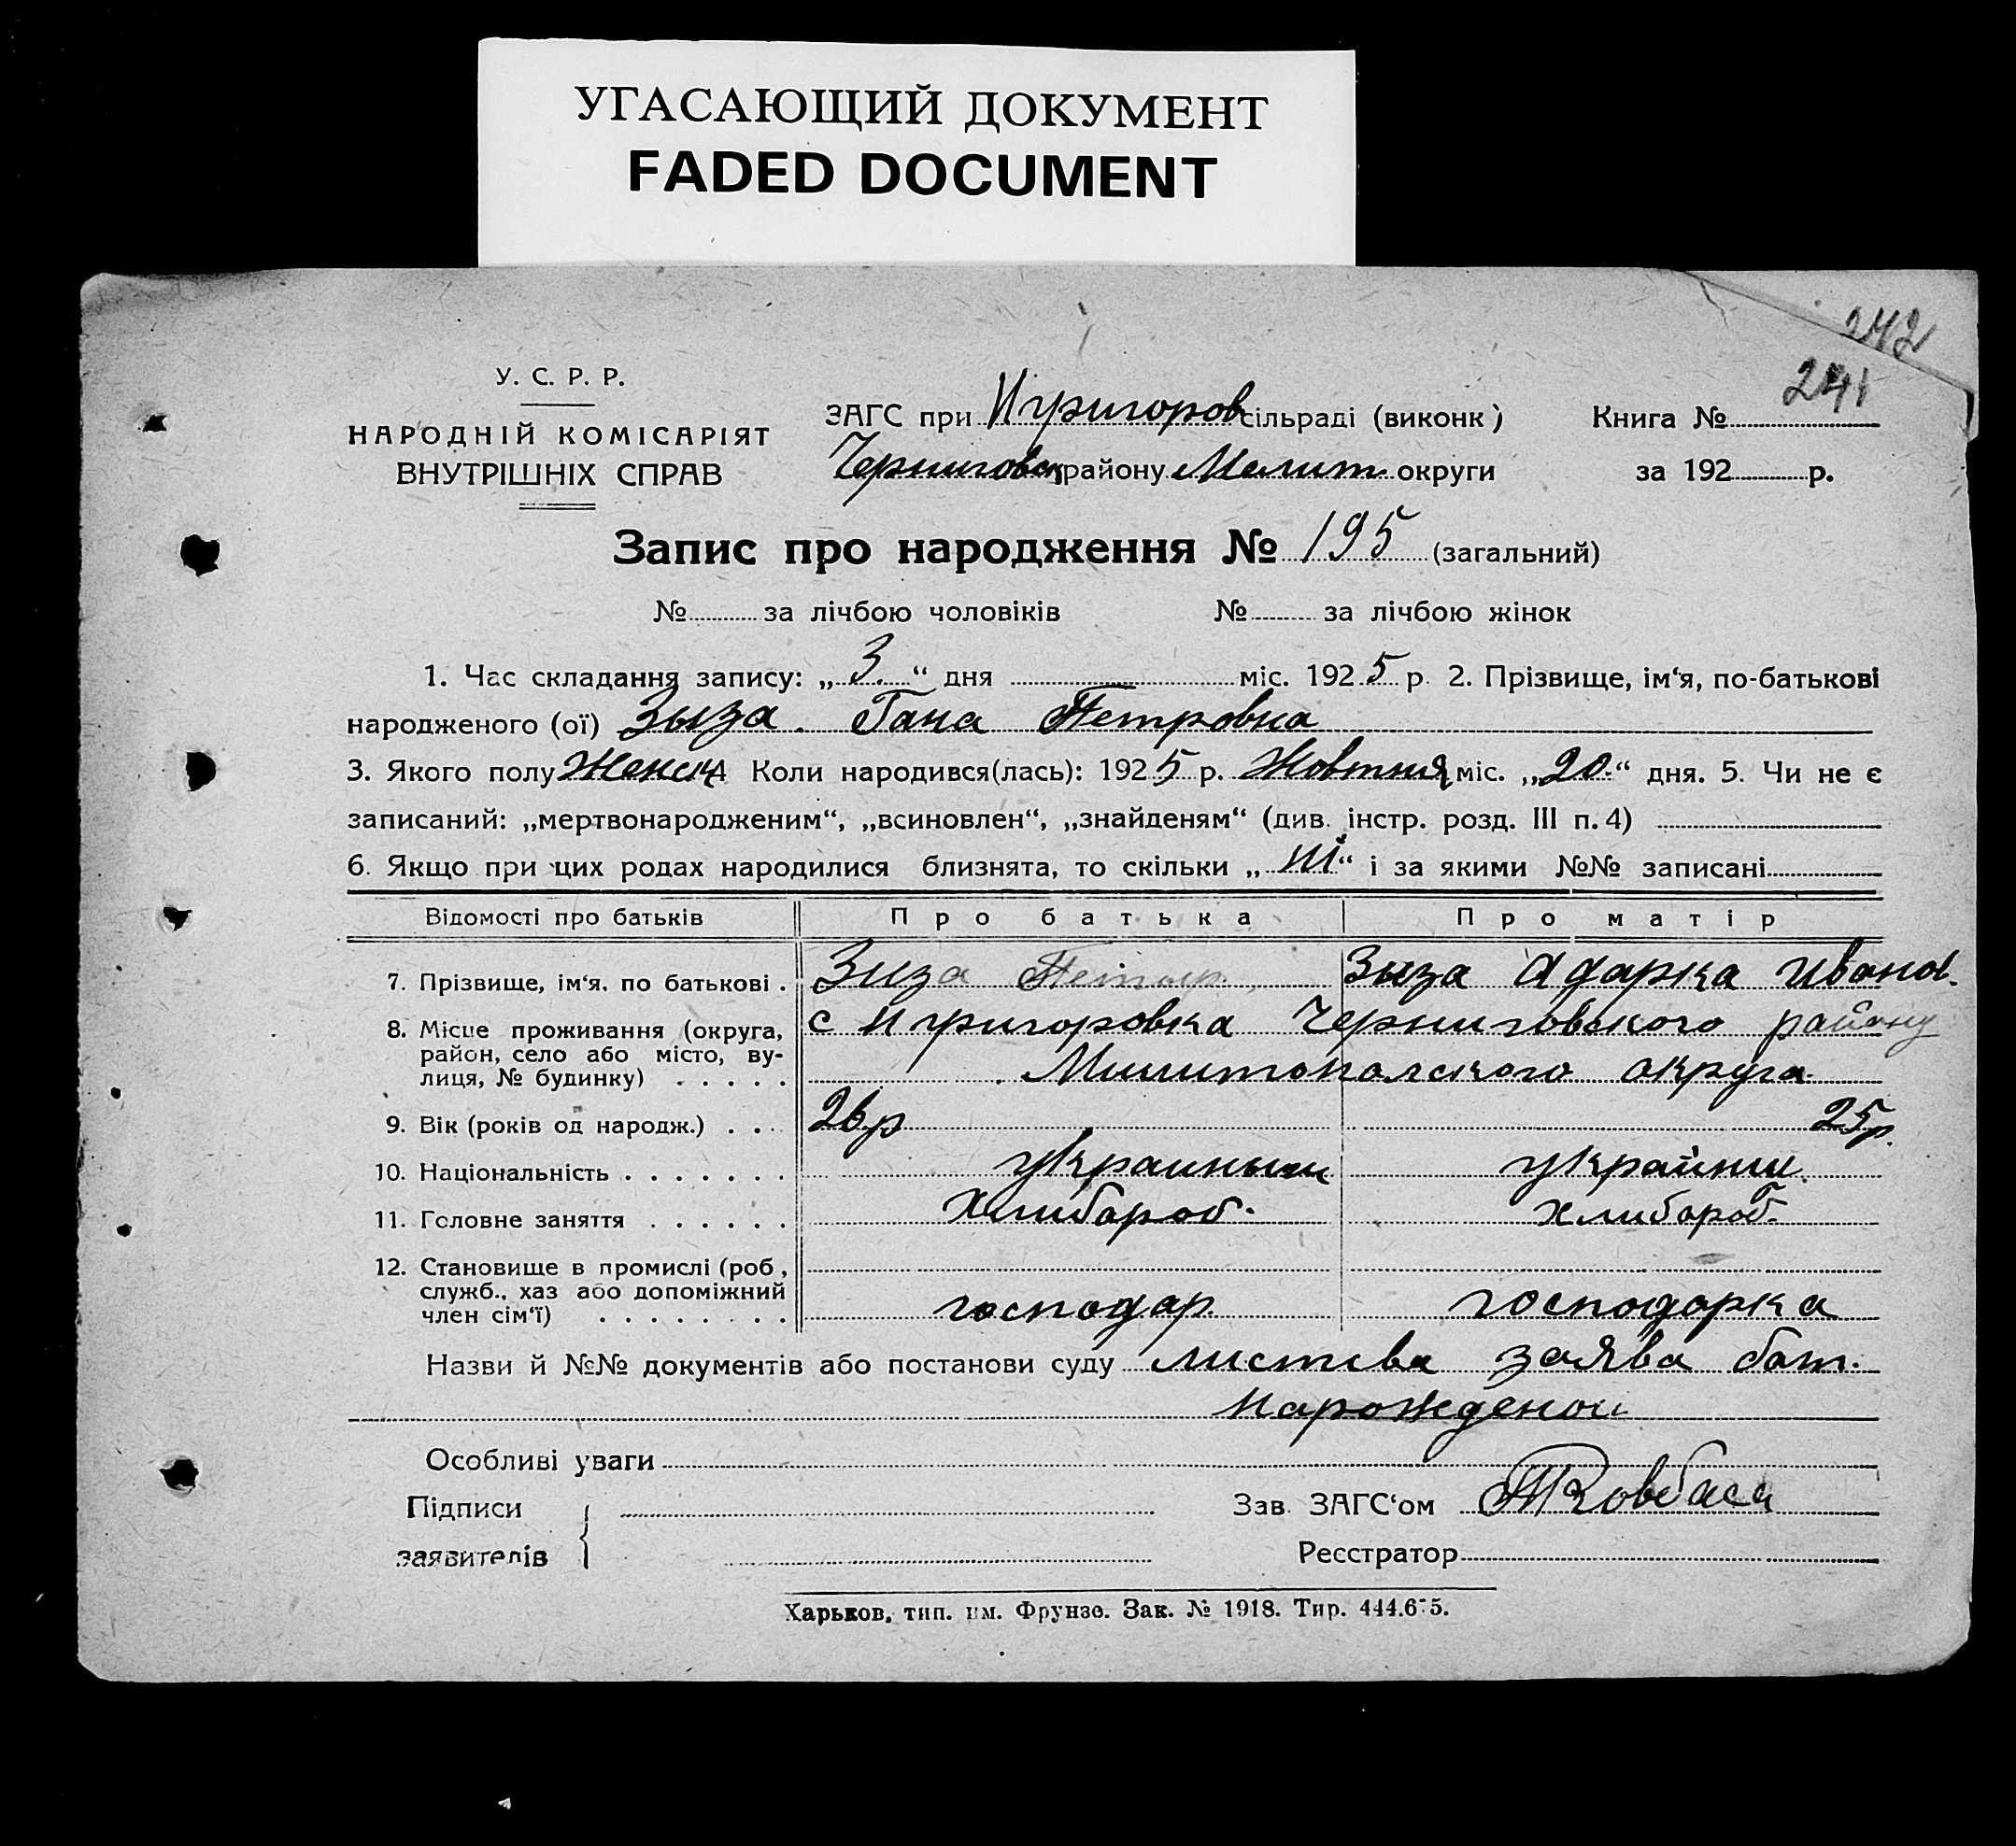 УГАСАЮЩИЙ ДОКУМЕНТ
FADED DOCUMENT
242
241
У. С. Р. Р.
НАРОДНІЙ КОМІСАРІЯТ
ВНУТРІШНІХ СПРАВ
ЗАГС при Нугригоров сільраді (виконк) Книга №
Черниговск району Мелит. округи за 192 р.
Запис про народження № 195 (загальний)
№ за лічбою чоловіків № за лічбою жінок
1. Час складання запису: „3.“ дня міс. 1925 р. 2. Прізвище, ім‘я, по-батькові
народженого (ої) Зыза. Гана Петровна
3. Якого полу Женск 4 Коли народився(лась): 1925 р. Жовтня міс. „20.“ дня. 5. Чи не є
записаний: „мертвонародженим“, „всиновлен“, „знайденям“ (див. інстр. розд. III п. 4)
6. Якщо при цих родах народилися близнята, то скільки „ні“ і за якими №№ записані
Відомості про батьків Про батька Про матір
7. Прізвище, ім‘я, по батькові . Зиза Петыр. Зыза Адарка Иванов.
8. Місце проживання (округа, с Игригоровка Черниговского району
район, село або місто, ву-
лиця, № будинку) . . . . . Милитопалского округа.
9. Вік (років од народж.) . . . 26р 25р.
10. Національність . . . . . . . украиныц украинц.
11. Головне заняття . . . . . . Хлибароб. хлибароб.
12. Становище в промислі (роб.,
служб., хаз або допоміжний
член сім‘ї) . . . . . . . . господар. господарка
Назви й №№ документів або постанови суду листева заява бат.
Нарожденои
Особливі уваги
Підписи Зав. ЗАГС‘ом Ковбаса
заявителів Реєстратор
Харьков, тип. им. Фрунзе. Зак. № 1918. Тир. 444.675.